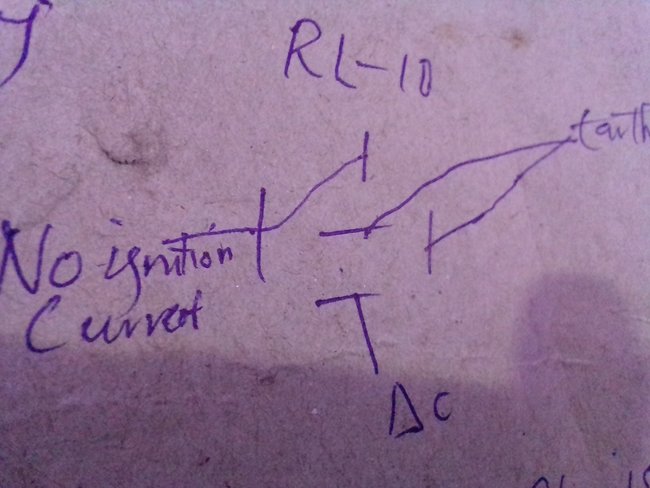 RL-10
Earth
No ignition
Current
DC